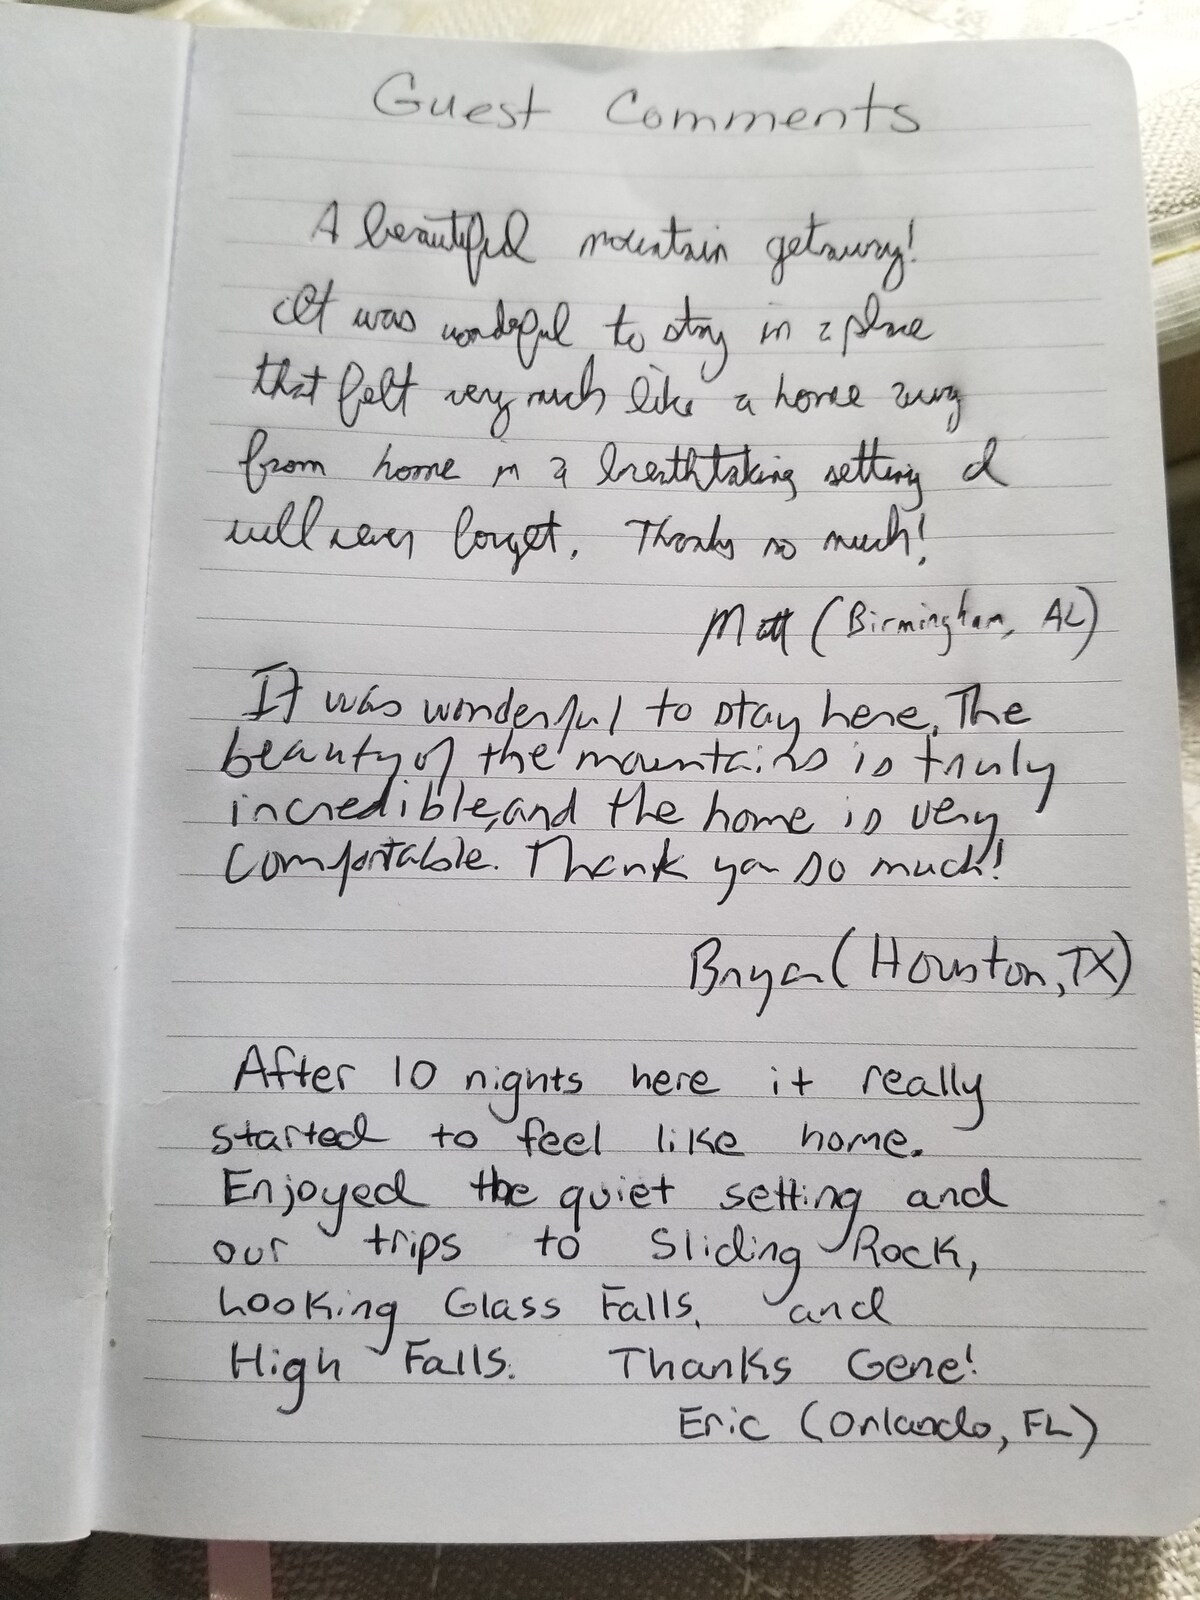 Guest Comments
A beautiful mountain getaway!
It was wonderful to stay in a place
that felt very much like a home away
from home in a breathtaking setting I
will never forget. Thanks so much!
Matt (Birmingham, AL)
It was wonderful to stay here. The
beauty of the mountains is truly
incredible, and the home is very
comfortable. Thank you so much!
Bryan (Houston, TX)
After 10 nights here it really
started to feel like home.
Enjoyed the quiet setting and
our trips to Sliding Rock,
Looking Glass Falls, and
High Falls. Thanks Gene!
Eric (Orlando, FL)